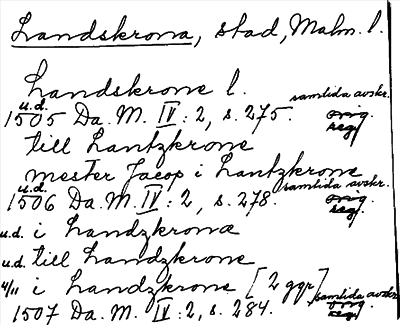 Landskrona, stad, Malm. l.
Landskrone l.
u.d. samtida avskr.
1505 Da. M. IV: 2, s. 275. orig.
reg.
till Lantzkrone
mester Jacop i Lantzkrone
u.d. samtida avskr.
1506 Da. M. IV: 2, s. 278. orig.
reg.
u.d. i Landzkronæ
u.d. till Landzkrone
4/11 i Landzkrone [2 ggr] samtida avskr.
1507 Da. M. IV: 2, s. 284. orig.
reg.